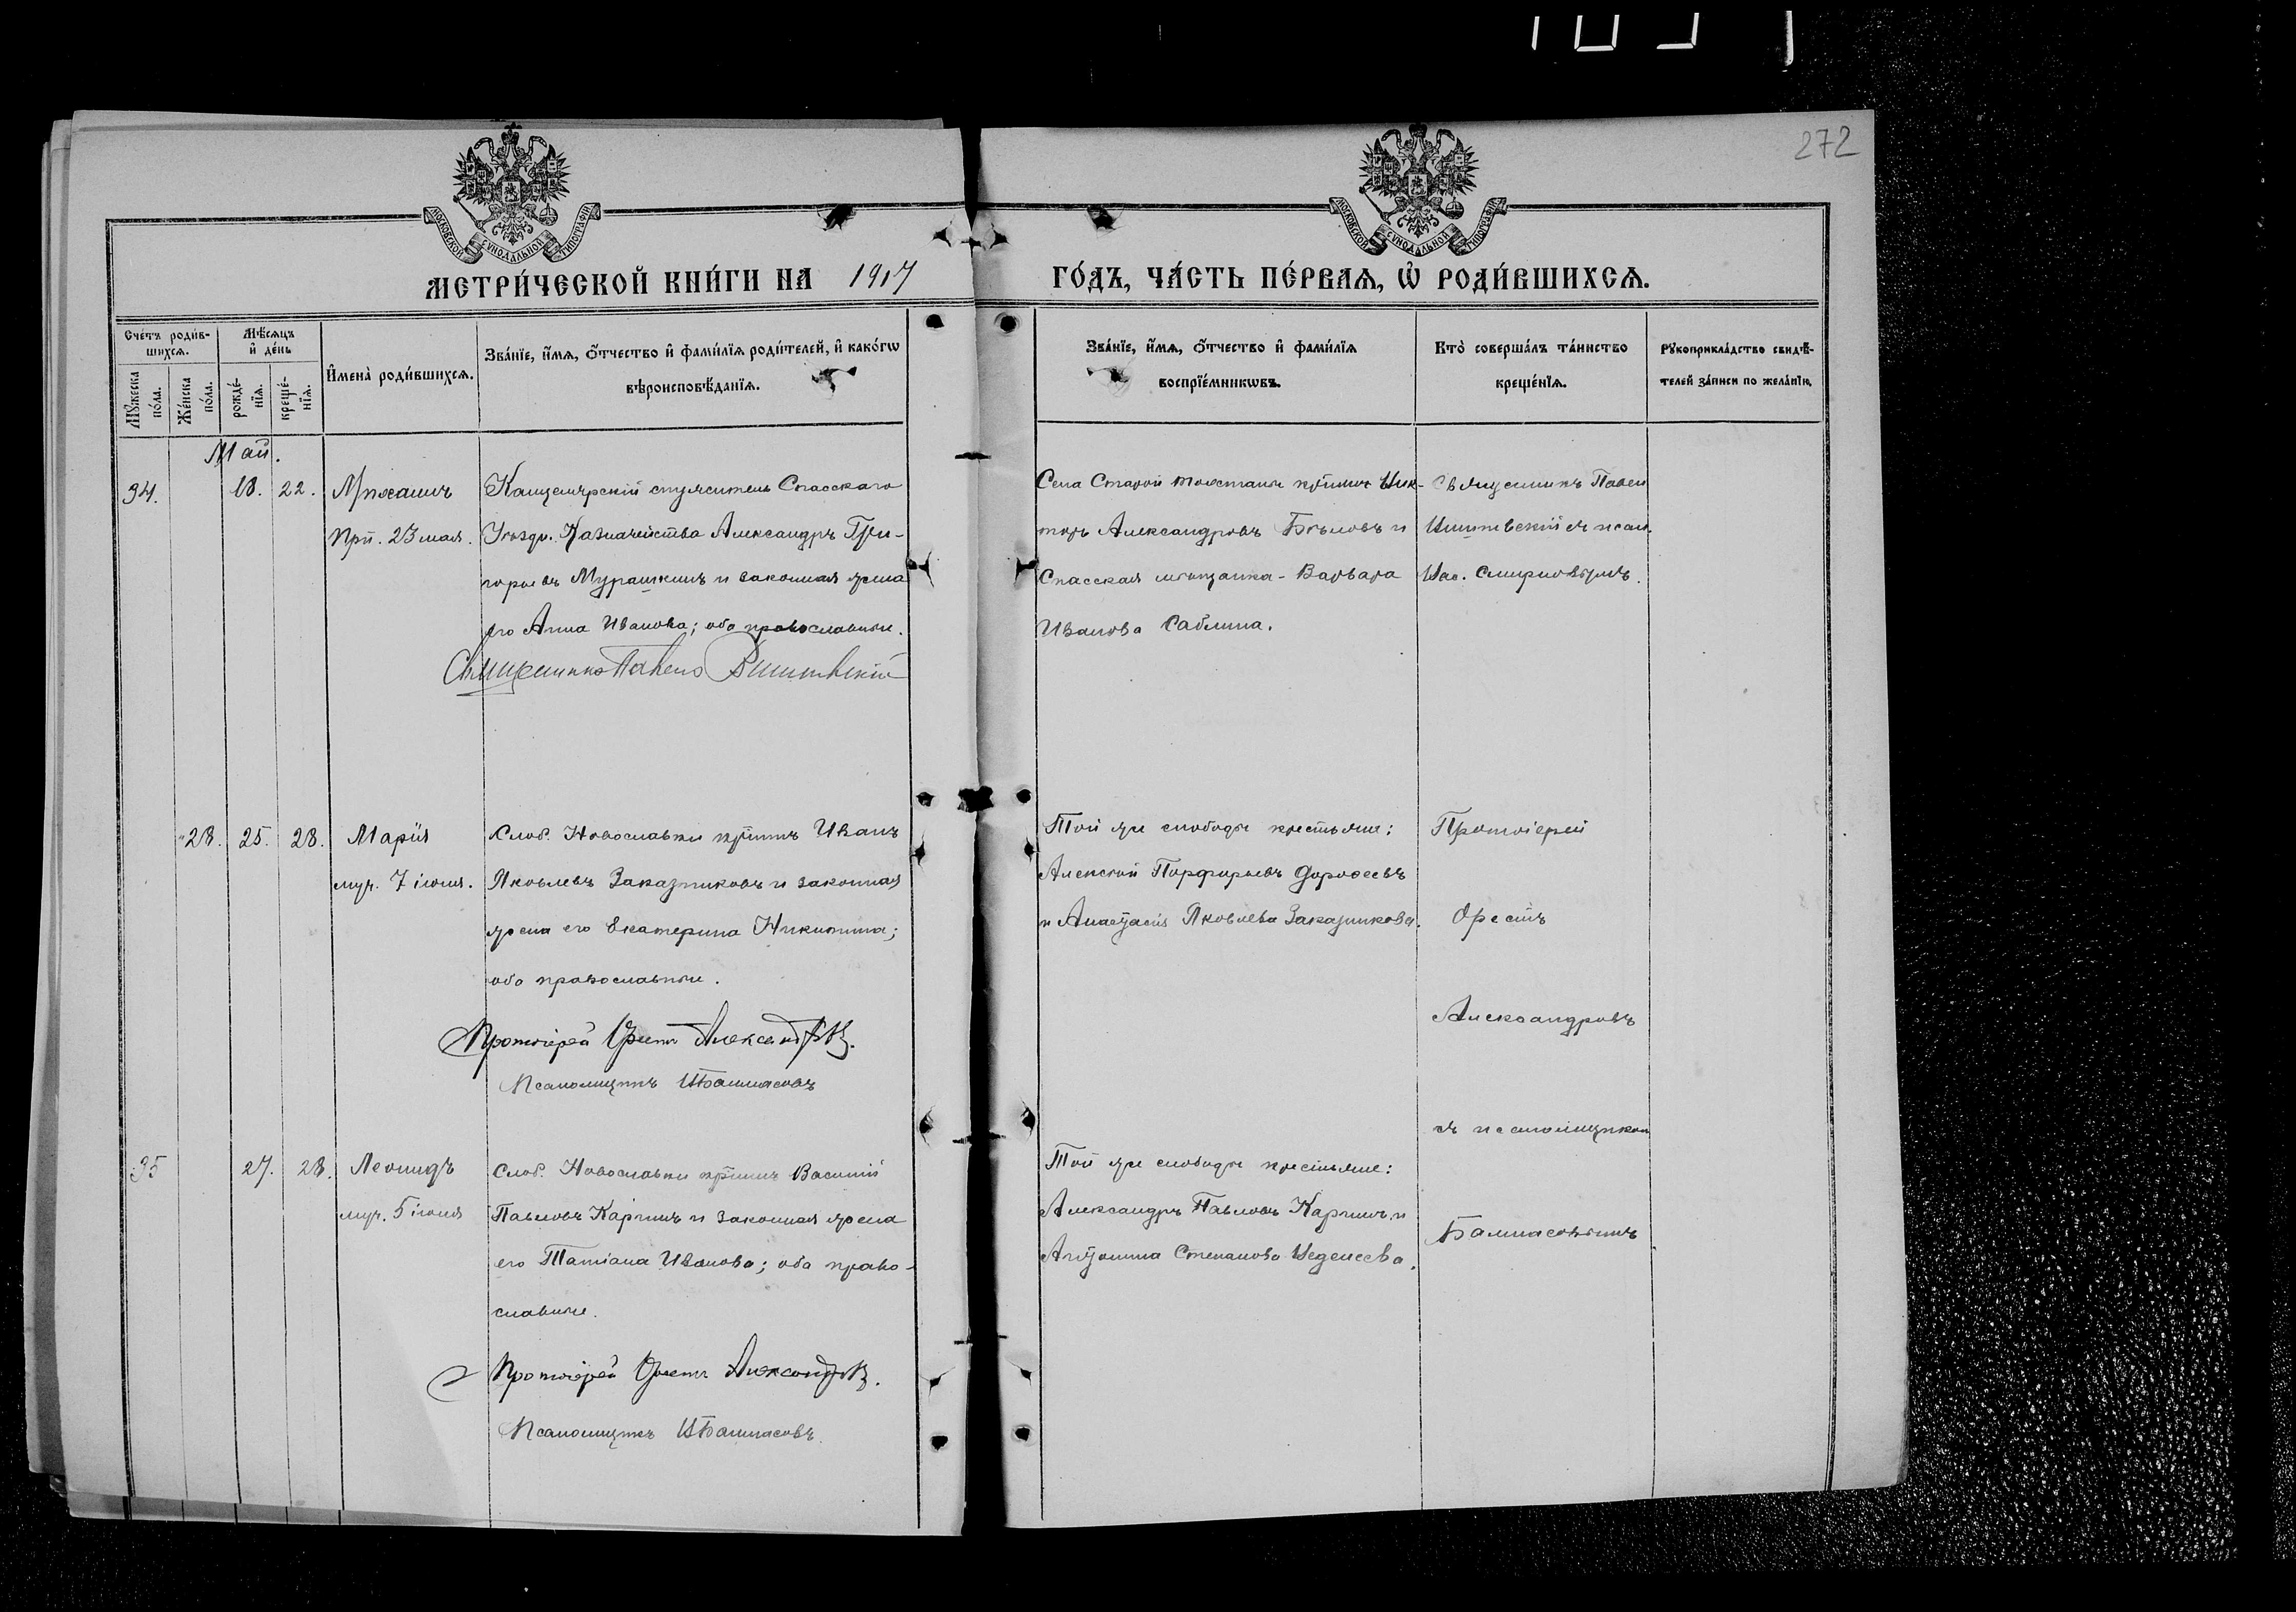 272
МОСКОВСКОЙ СѴНОДАЛЬНОЙ ТИПОГРАФІИ
МОСКОВСКОЙ СѴНОДАЛЬНОЙ ТИПОГРАФІИ
МЕТРИ́ЧЕСКОЙ КНИ́ГИ НА 1917 ГО́ДЪ, ЧА́СТЬ ПЕ́РВАѦ, Ѡ҆ РОДИ́ВШИХСѦ.
Сче́тъ роди́в-
шихсѧ.
Мꙋ́жеска по́ла.
Же́нска по́ла.
Мѣ́сѧцъ и҆ де́нь
рожде́-нїѧ.
креще́-нїѧ.
И҆мена̀ роди́вшихсѧ.
Зва́нїе, и҆́мѧ, ѻ҆́тчество и҆ фами́лїѧ роди́телей, и҆ како́гѡ
вѣроисповѣ́данїѧ.
Зва́нїе, и҆́мѧ, ѻ҆́тчество и҆ фами́лїѧ
воспрїе́мникѡвъ.
Кто̀ соверша́лъ та́инство
креще́нїѧ.
Рꙋкоприкла́дство свидѣ́-
телей за́писи по жела́нїю.
Май.
34. 18. 22. Михаилъ
Прп. 23 мая.
Канцелярскій служитель Спасскаго
Уѣздн. Казначейства Александръ Гри-
горьевъ Мурашкинъ и законная жена
его Анна Иванова; оба православные.
Священникъ Павелъ
Села Старой крѣпинъ Вик-
торъ Александровъ Бѣловъ и
Спасская мѣщанка - Варвара
Иванова Саблина.
Священникъ Павел
съ псал.
Смирновымъ.
28. 25. 28. Марія
муч. 7 іюня.
Слоб. Новославки крнинъ Иванъ
Яковлевъ Заказчиковъ и законная
жена его Екатерина Никитина;
оба православные.
Протоіерей Орестъ Александровъ.
Псаломщикъ И Балмасовъ
Той же слободы крестьяне:
Алексѣй Порфирьевъ Дорофеевъ
и Анастасія Яковлева Заказчикова.
Протоіерей
Орестъ
Александровъ
съ псаломщиком
Балмасовымъ
35 27. 28. Леонидъ
муч. 5 іюня
Слоб. Новославки крнинъ Василій
Павловъ Каргинъ и законная жена
его Татіана Иванова; оба право-
славные.
Протоіерей Орестъ Александровъ.
Псаломщикъ И Балмасовъ.
Той же слободы крестьяне:
Александръ Павловъ Каргинъ и
Антонина Степанова